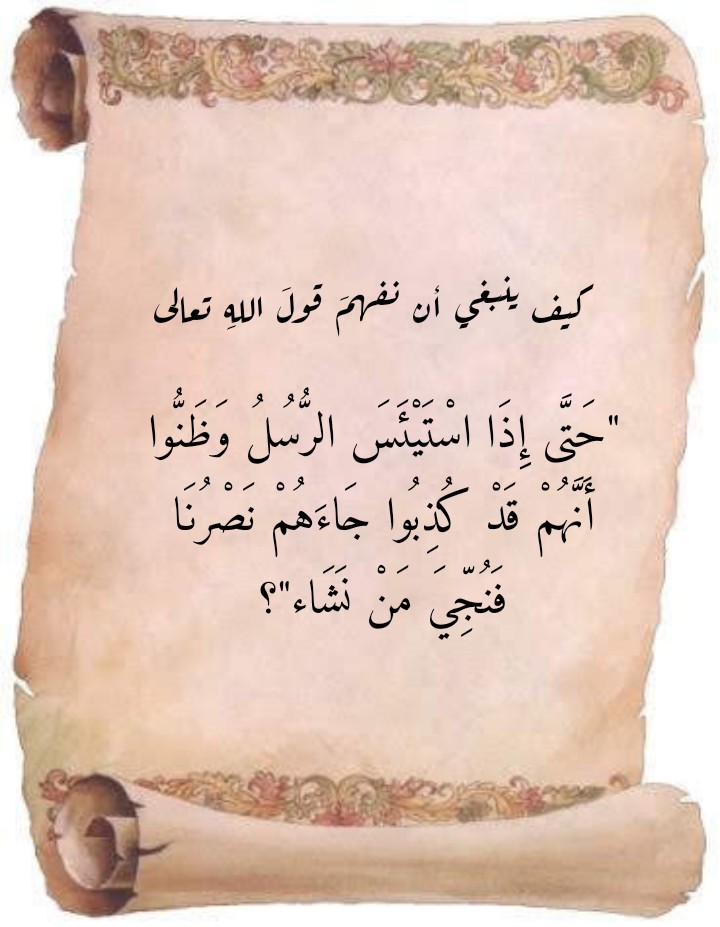 كيف ينبغي أن نفهمَ قولَ اللهِ تعالى
"حَتَّى إِذَا اسْتَيْئَسَ الرُّسُلُ وَظَنُّوا
أَنَّهُمْ قَدْ كُذِبُوا جَاءَهُمْ نَصْرُنَا
فَنُجِّيَ مَنْ نَشَاء"؟